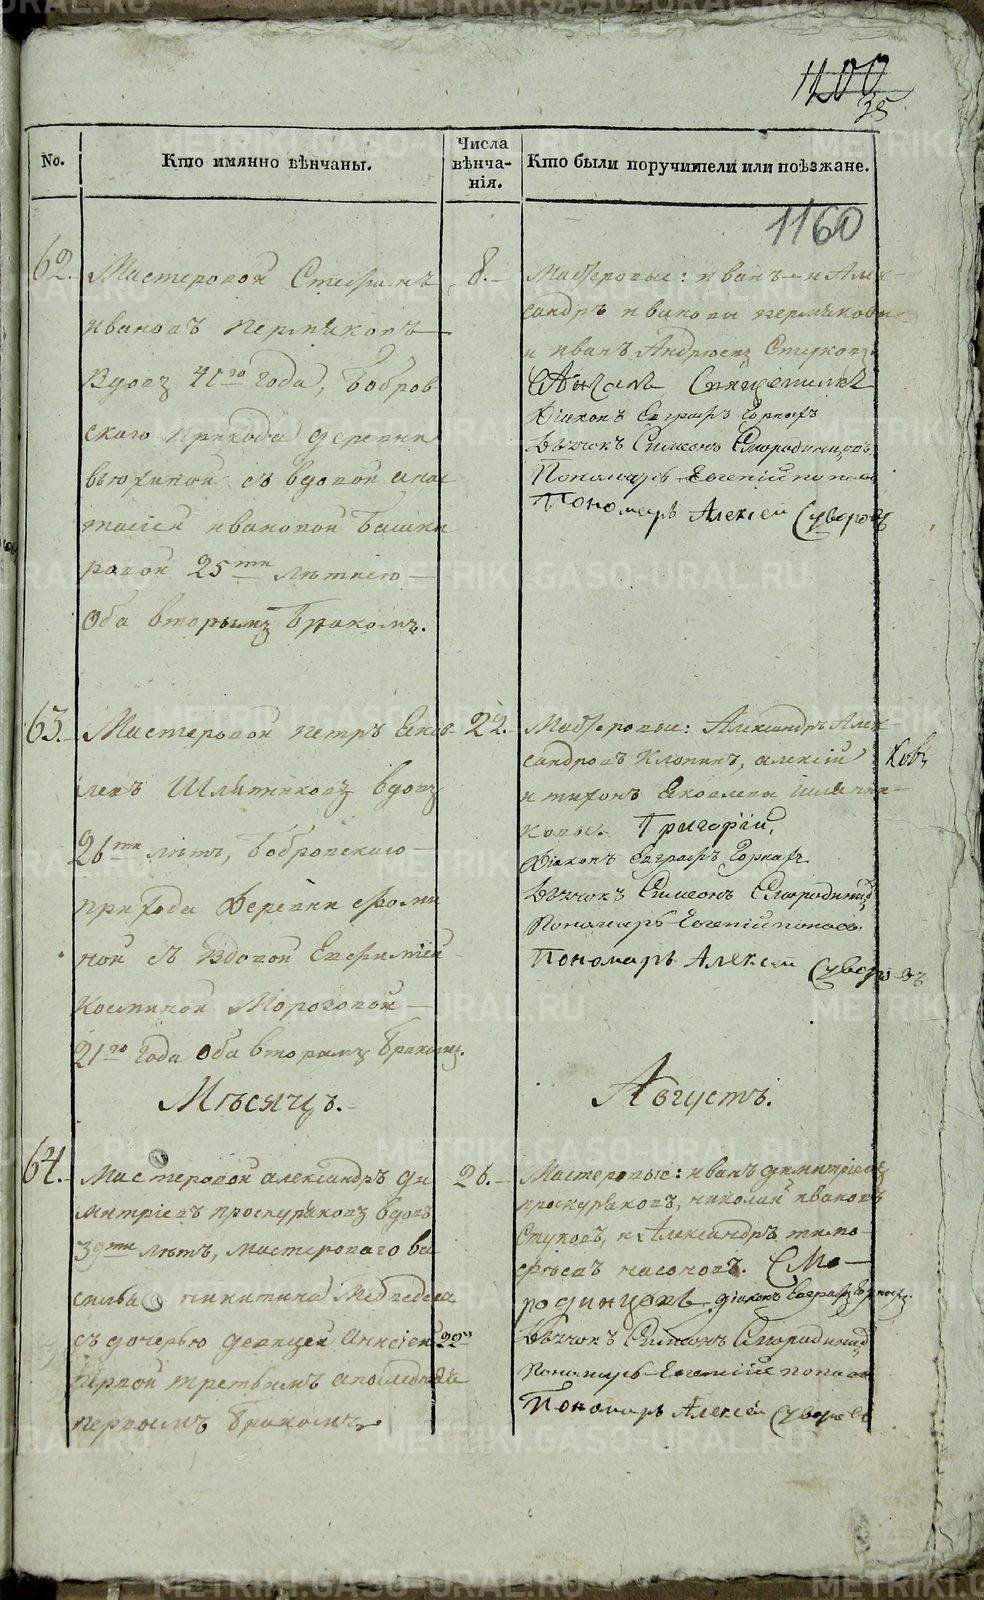 1200
35
No.
Кто имянно вѣнчаны.
Числа
вѣнча-
нія.
Кто были поручители или поѣзжане.
1160
62.
Мастеровой Стефанъ
Ивановъ Пермяковъ
вдовъ 41го года, Бобров
скаго прихода деревни
Вьюхиной съ вдовой Анас
тасіей Ивановой Башки
ровой 25ти лѣтнею
Оба вторымъ бракомъ.
8.
Мастеровые: Иванъ и Алек-
сандръ Ивановы Пермяковы
и Иванъ Андреевъ Стуковъ
Священникъ
Діаконъ Евграфъ
Дьячокъ Симеонъ Смородинцовъ
Пономарь Евгеній Поповъ
Пономарь Алексей Суворовъ
63.
Мастеровой Петръ Яков-
левъ Шляпниковъ вдовъ
26ти лѣтъ, Бобровскаго
прихода деревни Фоми
ной съ вдовой Евфиміей
Косминой Морозовой
21го года Оба вторымъ бракомъ.
22.
Мастеровые: Александръ Алек-
сандровъ Клопинъ, Алексій
и Тихонъ Яковлевы Шляпни-
ковы. Григорій
Діаконъ Евграфъ
Дьячокъ Симеонъ Смородинцовъ
Пономарь Евгеній Поповъ
Пономарь Алексей Суворовъ
Мѣсяцъ.
Августъ.
64.
Мастеровой Александръ Ди
митріевъ Проскуряковъ вдовъ
39ти лѣтъ, мастероваго Ва
силья Никитина Медведева
съ дочерью девицей Анисіей 22
первой третьимъ а последняя
первымъ бракомъ
26.
Мастеровые: Иванъ Димитріевъ
Проскуряковъ, Николай Ивановъ
Стуковъ, и Александръ Тимо-
фѣевъ Насоновъ. Смо-
родинцовъ діаконъ Евграфъ
Дьячокъ Симеонъ Смородинцовъ
Пономарь Евгеній Поповъ
Пономарь Алексей Суворовъ